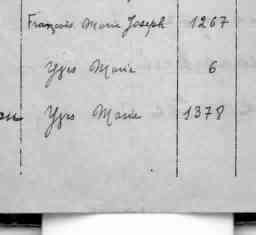 François Marie Joseph 1267
Yves Marie 6
Yves Marie 1378